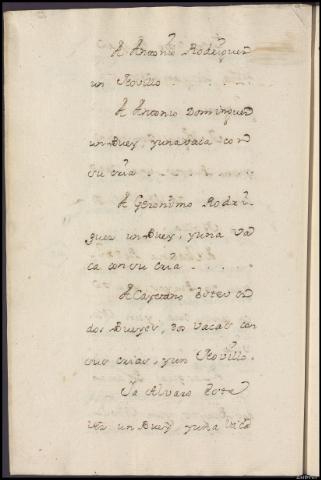 A Antonio Rodriguez
un Novillo
A Antonio Dominguez
un Buey, y una vaca con
su cria
A Geronimo Rodri-
guez un Buey, y una va
ca con su cria
A Cayetano Estev
dos Bueyes, dos vacas con
sus crias, y un Novillo.
Ya Alvaro Este
vez un Buey, y una vaca